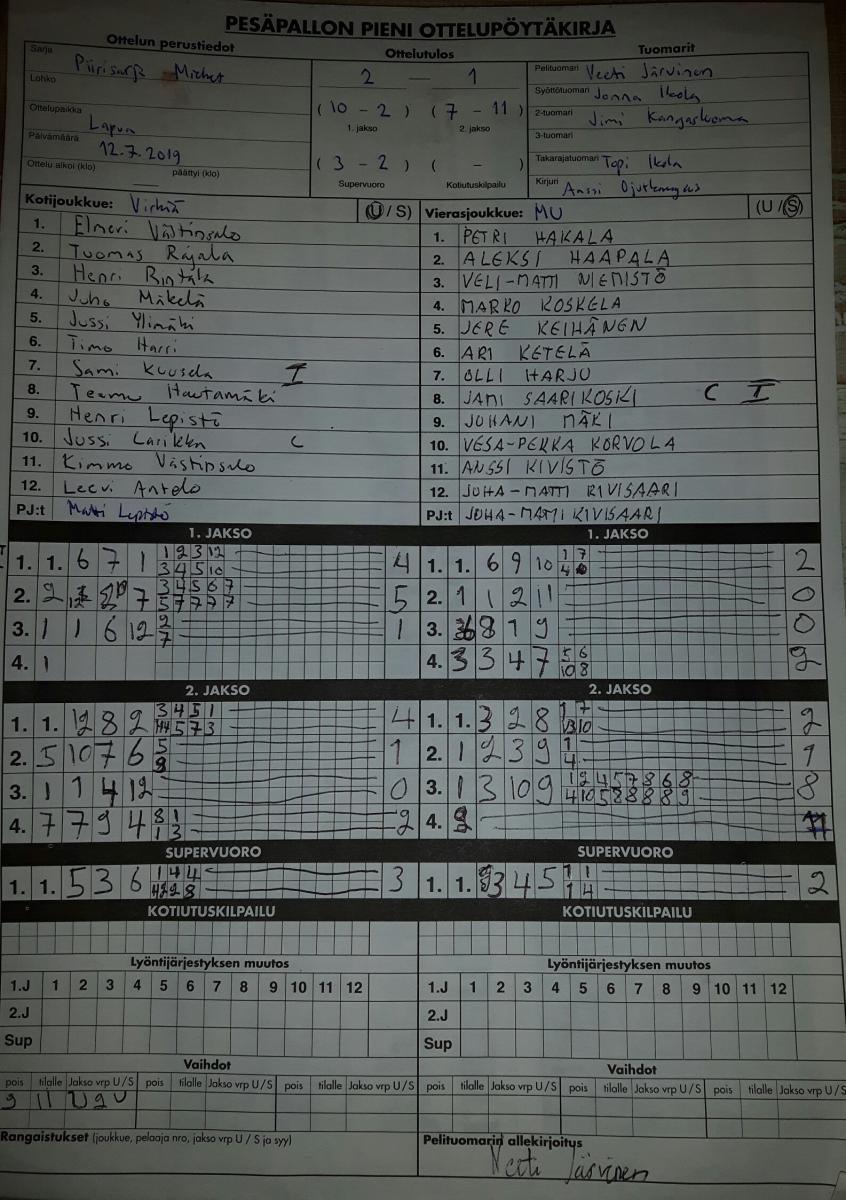 PESÄPALLON PIENI OTTELUPÖYTÄKIRJA
Ottelun perustiedot
Ottelutulos
Tuomarit
Sarja Piirisarja Miehet
Lohko
Ottelupaikka Lapua
Päivämäärä 12.7.2019
Ottelu alkoi (klo) päättyi (klo)
2 — 1
( 10 - 2 ) ( 7 - 11 )
1. jakso 2. jakso
( 3 - 2 ) ( - )
Supervuoro Kotiutuskilpailu
Pelituomari Veeti Järvinen
Syöttötuomari Jonna Ikola
2-tuomari Jimi Kangaskoma
3-tuomari
Takarajatuomari Topi Ikola
Kirjuri Anssi
Kotijoukkue: Virkiä (U / S)
1. Elmeri Västinsalo
2. Tuomas Rajala
3. Henri Rintala
4. Juho Mäkelä
5. Jussi Ylimäki
6. Timo Harri
7. Sami Kuusela I
8. Teemu Hautamäki
9. Henri Lepistö
10. Jussi Larikka C
11. Kimmo Västinsalo
12. Leevi Antelo
PJ:t Matti Lepistö
Vierasjoukkue: MU (U / S)
1. PETRI HAKALA
2. ALEKSI HAAPALA
3. VELI-MATTI NIEMISTÖ
4. MARKO KOSKELA
5. JERE KEIHÄNEN
6. ARI KETELÄ
7. OLLI HARJU
8. JANI SAARIKOSKI C I
9. JUHANI MÄKI
10. VESA-PEKKA KORVOLA
11. ANSSI KIVISTÖ
12. JUHA-MATTI KIVISAARI
PJ:t JUHA-MATTI KIVISAARI
1. JAKSO
1. 1. 6 7 1 1 2 3 12 4
3 4 5 10
2. 2 7 3 4 5 6 7 5
5 7 7 7 7
3. 1 1 6 12 2 1
7
4. 1
1. JAKSO
1. 1. 6 9 10 1 7 2
4
2. 1 1 2 11 0
3. 8 1 9 0
4. 3 3 4 7 5 6 2
10 8
2. JAKSO
1. 1. 12 8 2 3 4 5 1 4
5 7 3
2. 5 10 7 6 5 1
8
3. 1 1 4 12 0
4. 7 7 9 4 8 1 2
1 3
2. JAKSO
1. 1. 3 2 8 1 7 2
10
2. 1 2 3 9 1 1
4
3. 1 3 10 9 1 2 4 5 7 8 6 8 8
4 10 5 8 8 8 8 9
4. 11
SUPERVUORO
1. 1. 5 3 6 1 4 4 3
2 8
SUPERVUORO
1. 1. 3 4 5 1 1 2
1 4
KOTIUTUSKILPAILU
KOTIUTUSKILPAILU
Lyöntijärjestyksen muutos
1.J 1 2 3 4 5 6 7 8 9 10 11 12
2.J
Sup
Lyöntijärjestyksen muutos
1.J 1 2 3 4 5 6 7 8 9 10 11 12
2.J
Sup
Vaihdot
pois tilalle Jakso vrp U / S pois tilalle Jakso vrp U / S pois tilalle Jakso vrp U / S
9 11
Vaihdot
pois tilalle Jakso vrp U / S pois tilalle Jakso vrp U / S pois tilalle Jakso vrp U / S
Rangaistukset (joukkue, pelaaja nro, jakso vrp U / S ja syy)
Pelituomarin allekirjoitus
Veeti Järvinen